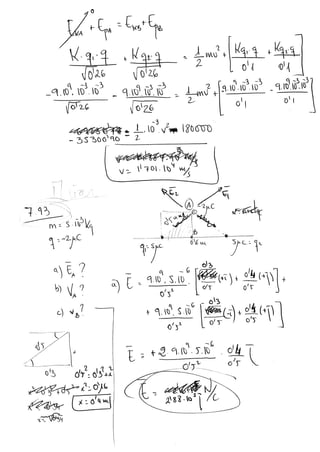 E_KA + E_PA = E_KB + E_PB
K·q₁·q / √0'26 + Kq₂·q / √0'26 = 1/2 mv² + [Kq₁q / 0'1 + Kq₂q / 0'1]
-9.10⁹.10⁻³.10⁻³ / √0'26 - 9.10⁹.10⁻³.10⁻³ / √0'26 = 1/2 mv² + [-9.10⁹.10⁻³.10⁻³ / 0'1 - 9.10⁹.10⁻³.10⁻³ / 0'1]
- 35300'90 = 1/2 . 10⁻³ . v² - 180000
v = 1'701.10⁴ m/s
7.93
m = 5.10⁻³ kg
q = -2μC
E₂ E₁
A -2μC
B
q₁ = 5μC 0'6m 5μC = q₂
a) E_A ?
b) V_A ?
c) v_B ?
a) E = 9.10⁹.5.10⁻⁶ / 0'5² [0'3 / 0'5 (-i) + 0'4 / 0'5 (+j)] +
+ 9.10⁹.5.10⁻⁶ / 0'5² [0'3 / 0'5 (i) + 0'4 / 0'5 (+j)]
E = +2 9.10⁹.5.10⁻⁶ / 0'5² · 0'4 / 0'5 j
E = 2'88.10⁵ j N/C
0'5
0'3
0'5² = 0'3² + x²
x² = 0'16
x = 0'4m